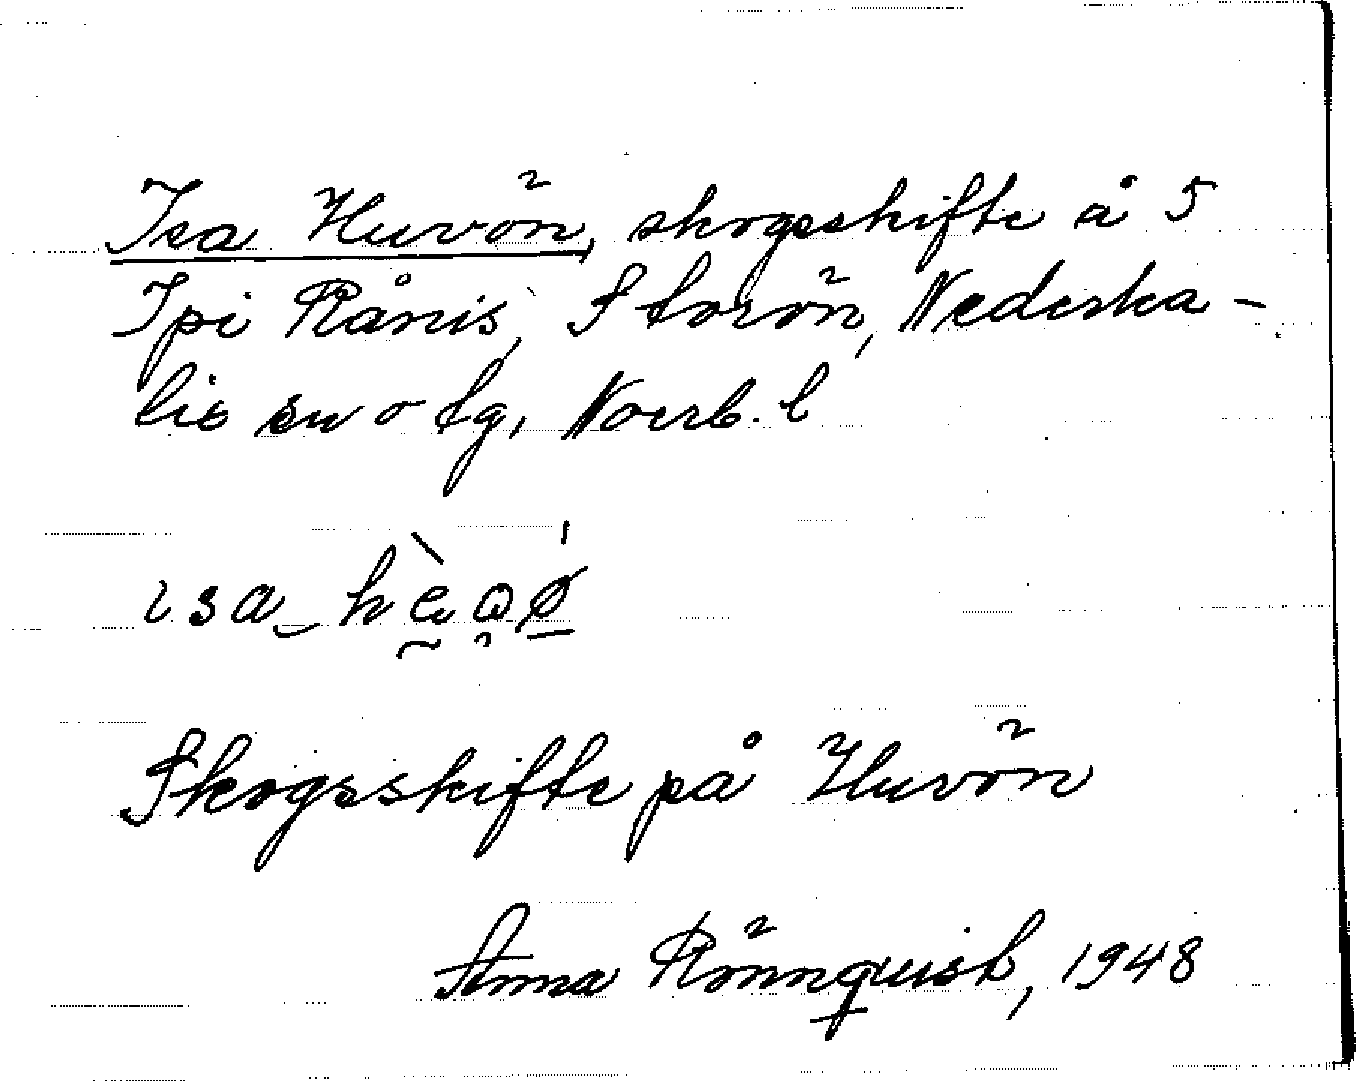 Isa Huvön, skogsskifte å 5
Ipi Rånis, Storön, Nederka-
lix sn o tg, Norrb. l
Skogsskifte på Huvön
Anna Rönnquist, 1948